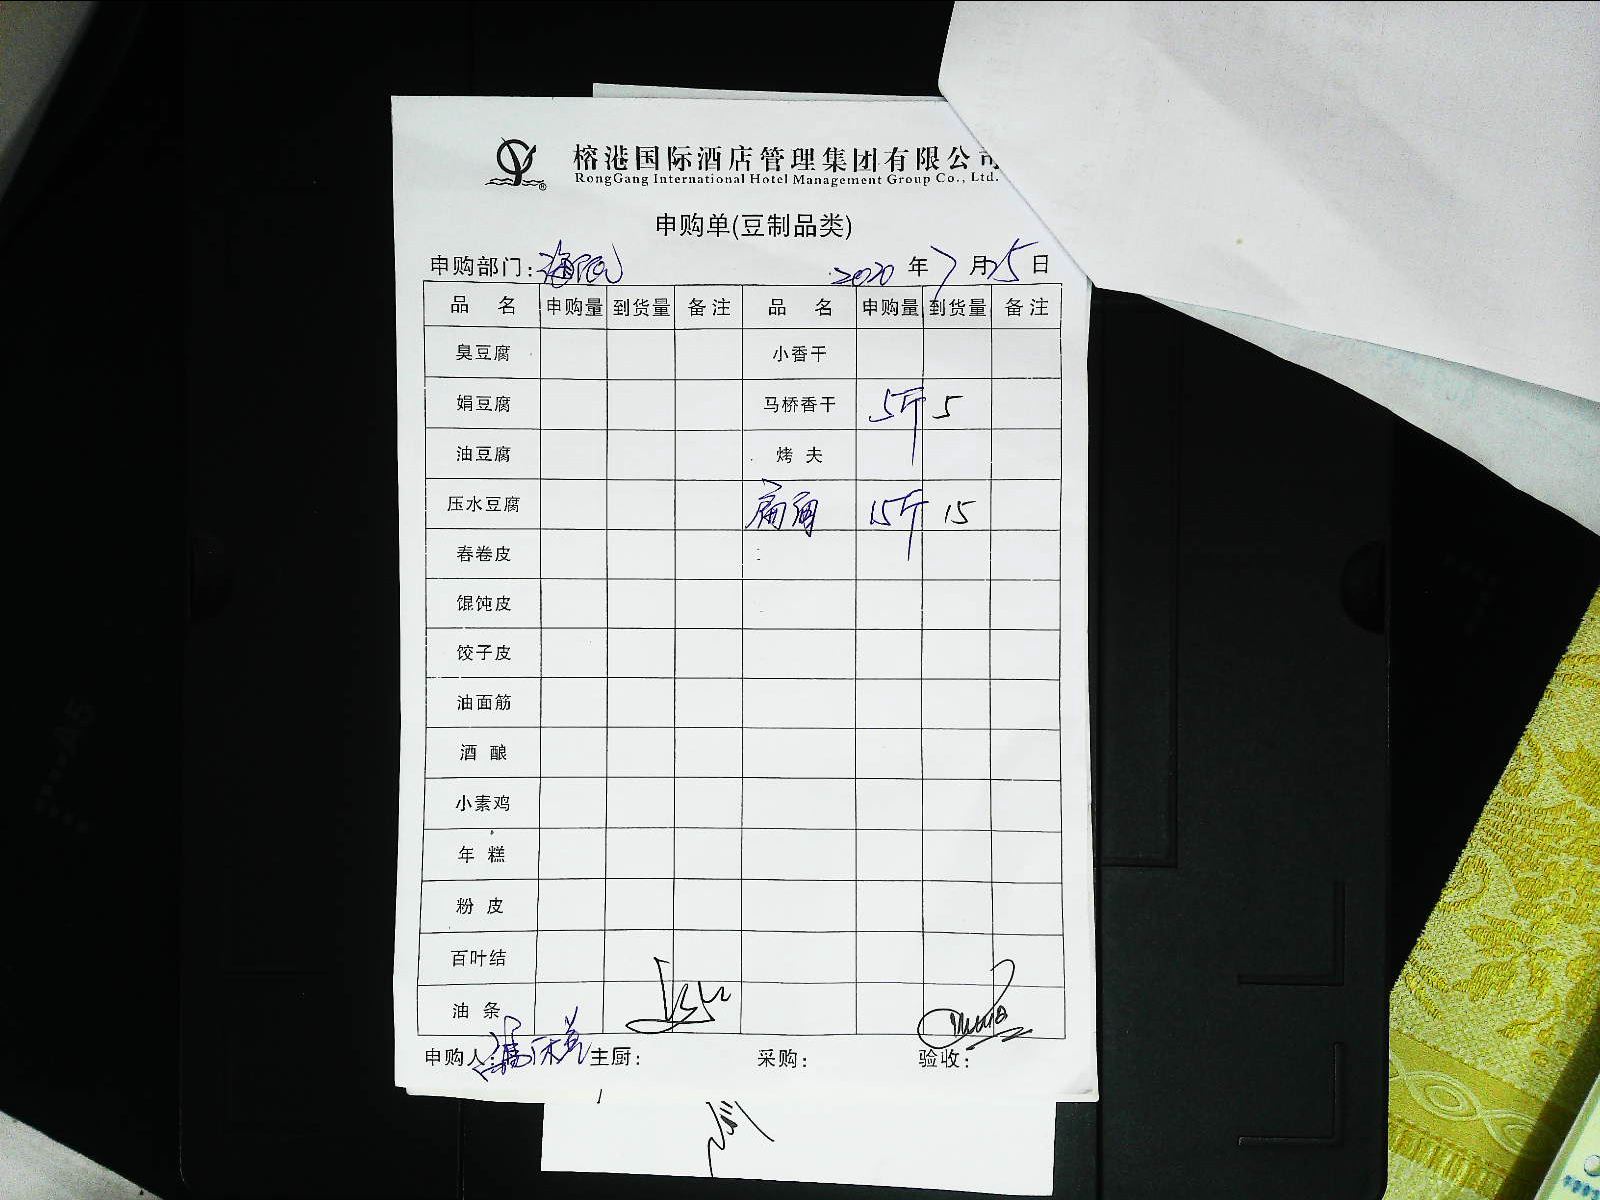 榕港国际酒店管理集团有限公司
RongGang International Hotel Management Group Co., Ltd.
申购单(豆制品类)
申购部门: 2020 年 7 月 25 日
品 名 申购量 到货量 备注 品 名 申购量 到货量 备注
臭豆腐 小香干
娟豆腐 马桥香干 5斤 5
油豆腐 烤 夫
压水豆腐 15斤 15
春卷皮
馄饨皮
饺子皮
油面筋
酒 酿
小素鸡
年 糕
粉 皮
百叶结
油 条
申购人: 主厨: 采购: 验收: